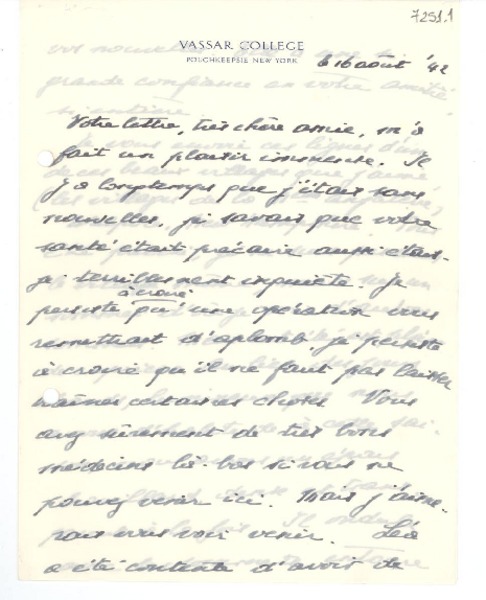 7251.1
VASSAR COLLEGE
POUGHKEEPSIE NEW YORK
le 16 août '42
Votre lettre, très chère amie, m'a
fait un plaisir immense. Il
y a longtemps que j'étais sans
nouvelles, je savais que votre
santé était précaire aussi étais-
je terriblement inquiète. Je
à croire
persiste qu'une opération vous
remettrait d'aplomb je persiste
à croire qu'il ne faut pas laisser
traîner certaines choses. Vous
avez sûrement de très bons
médecins là-bas si vous ne
pouvez venir ici. Mais j'aime-
rais vous voir venir. Léo
a été contente d'avoir de